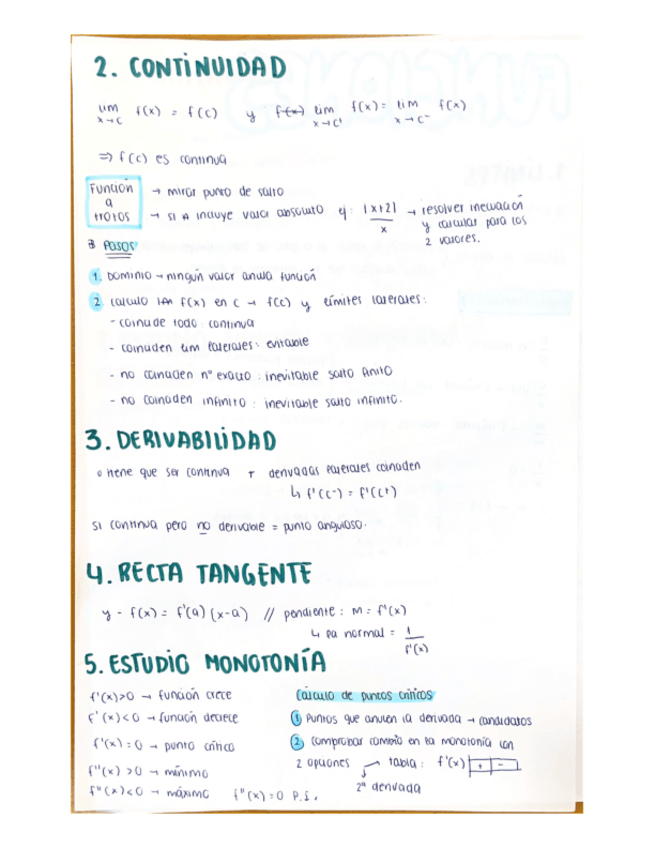 2. CONTINUIDAD
lim x→c f(x) = f(c) y f(x) lim x→c⁺ f(x) = lim x→c⁻ f(x)
⇒ f(c) es continua
Función a trozos
→ mirar punto de salto
→ si A incluye valor absoluto ej: |x+2|/x → resolver inecuación y calcular para los 2 valores.
Pasos
1. Dominio → ningún valor anula función
2. calculo f(x) en c → f(c) y límites laterales:
- coincide todo: continua
- coinciden lim laterales: evitable
- no coinciden nº exacto: inevitable salto finito
- no coinciden infinito: inevitable salto infinito.
3. DERIVABILIDAD
tiene que ser continua + derivadas laterales coinciden
↳ f'(c⁻) = f'(c⁺)
si continua pero no derivable = punto anguloso.
4. RECTA TANGENTE
y - f(x) = f'(a) (x-a) // pendiente: m = f'(x)
↳ la normal = 1/f'(x)
5. ESTUDIO MONOTONÍA
f'(x)>0 → función crece
f'(x)<0 → función decrece
f'(x)=0 → punto crítico
f''(x)>0 → mínimo
f''(x)<0 → máximo f''(x)=0 P.I.
Cálculo de puntos críticos
1 Puntos que anulen la derivada → candidatos
2 Comprobar cambio en la monotonía con
2 opciones → tabla: f'(x) + -
2ª derivada